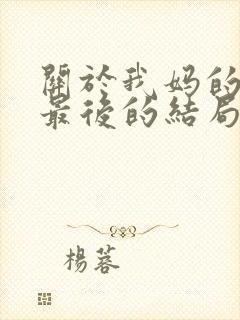 關於我妈的
最後的結局
楊蓉